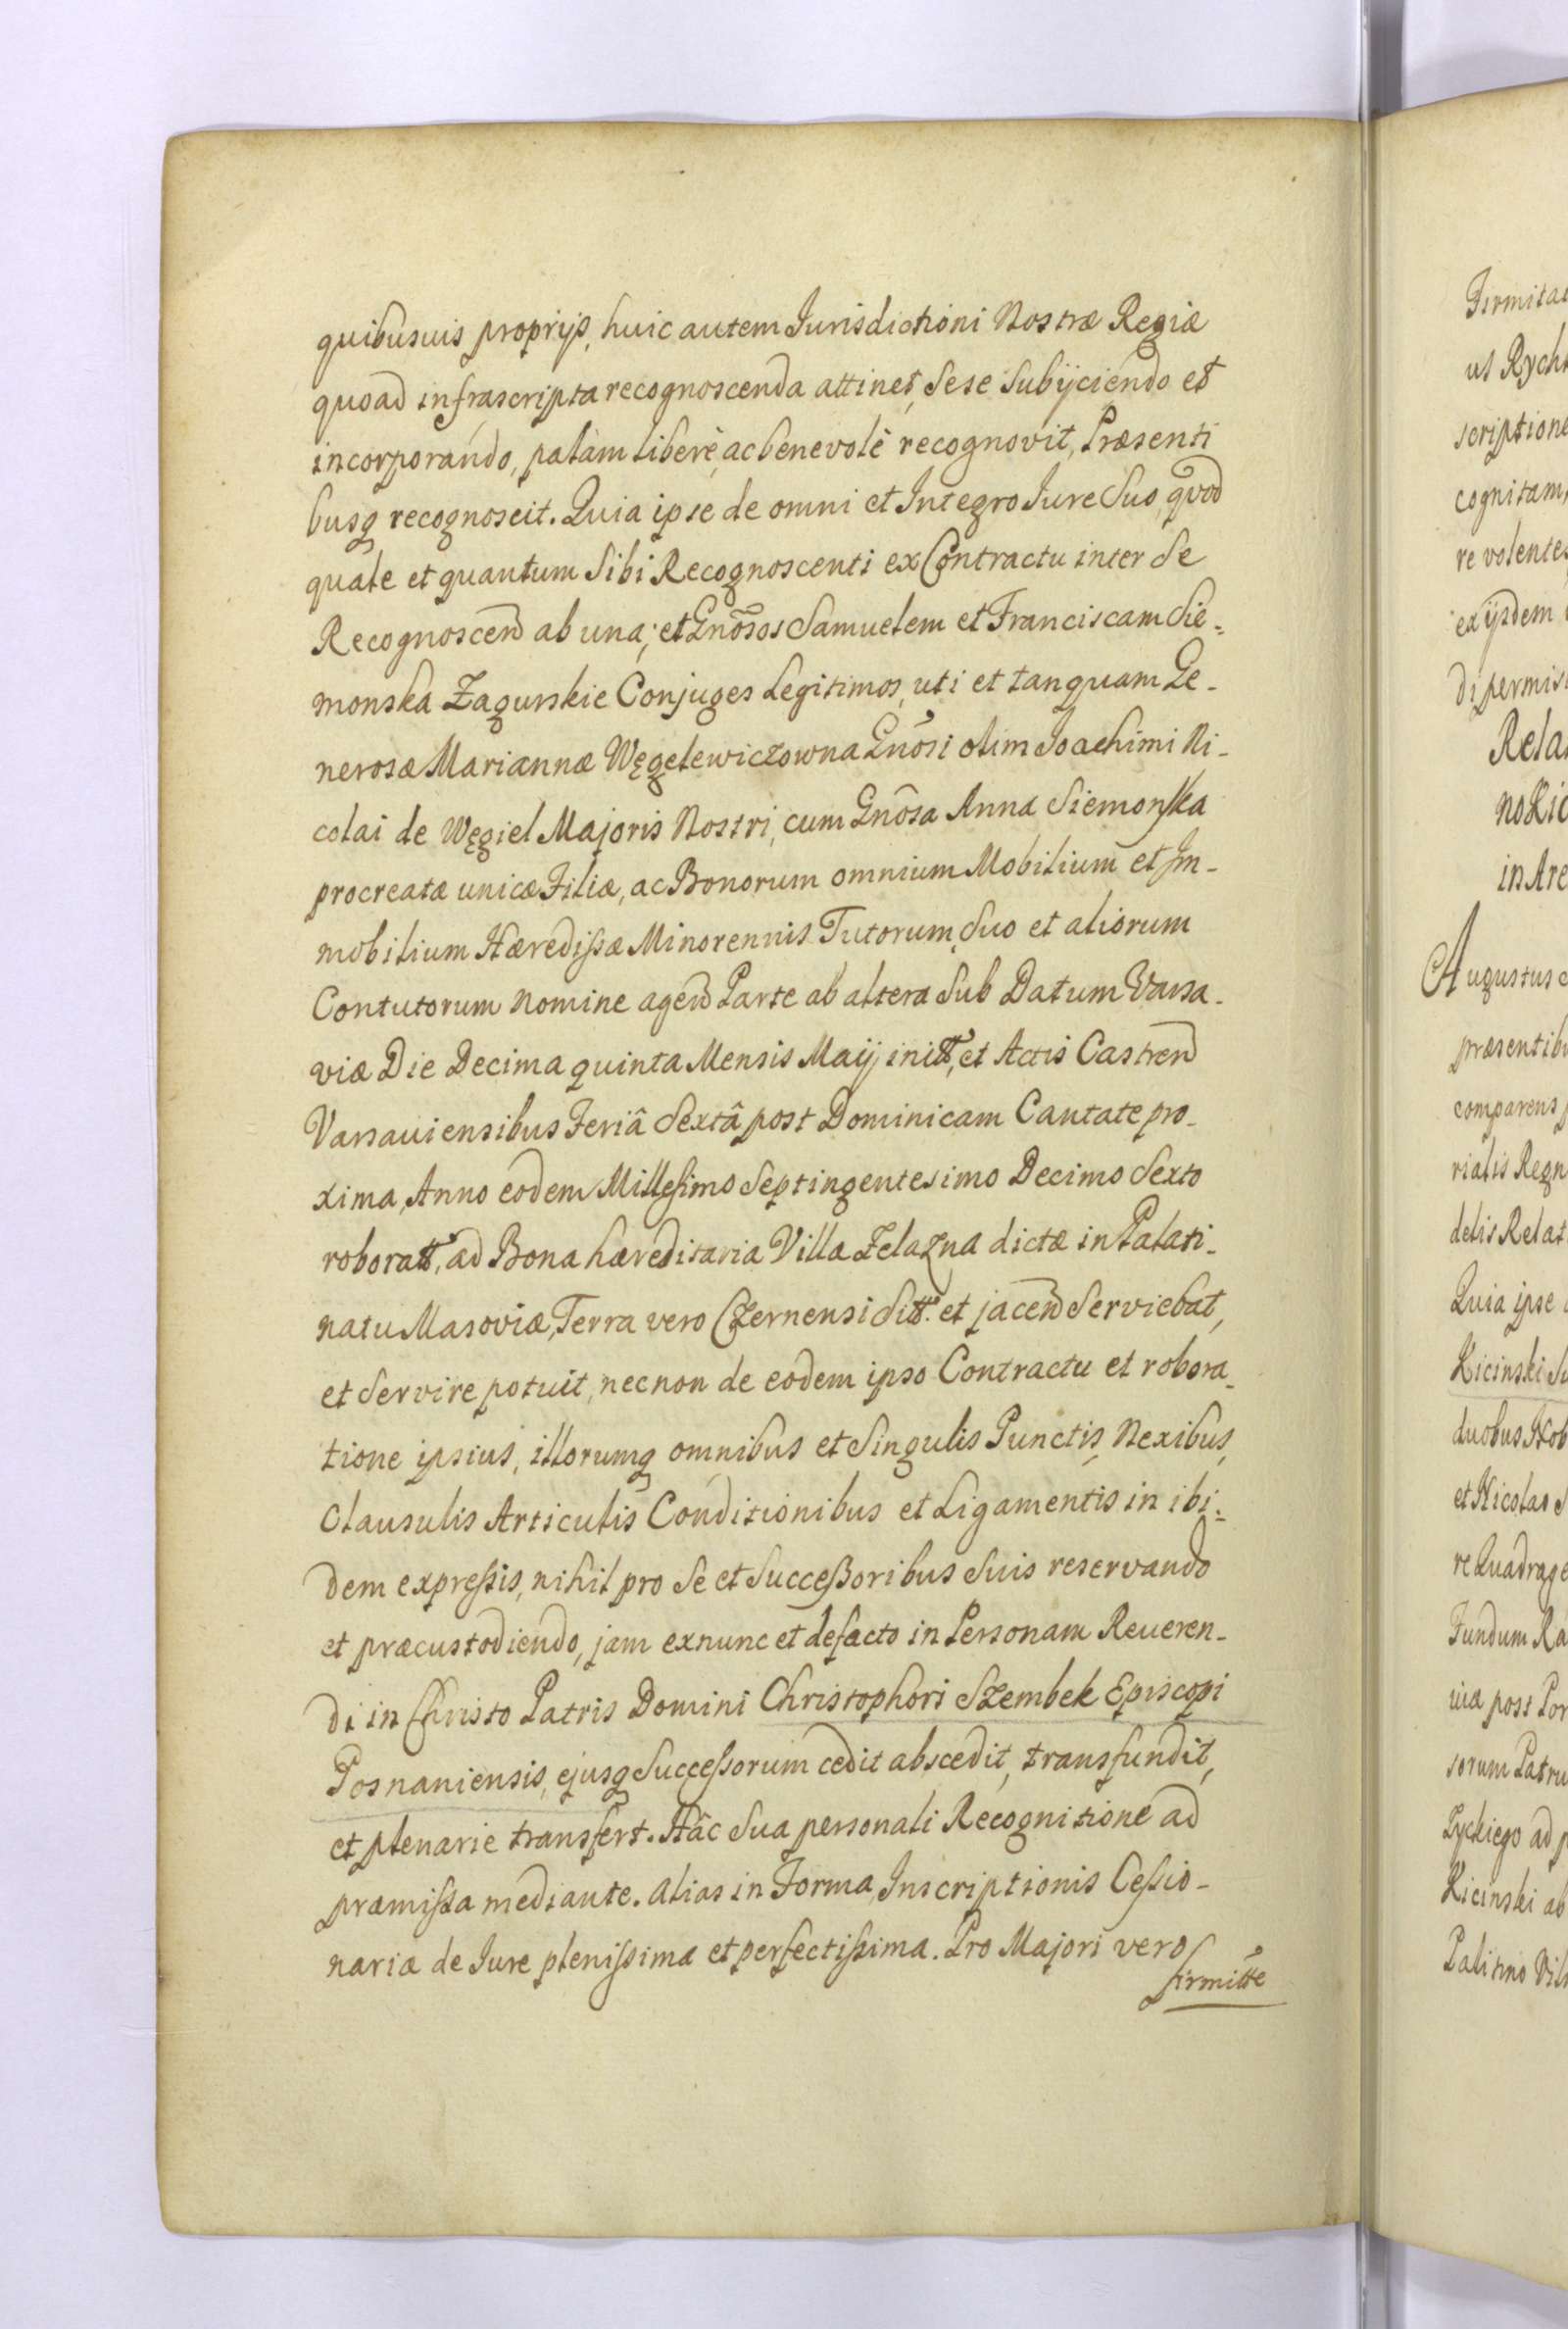 quibusuis proprijs, huic autem Jurisdictioni Nostræ Regiæ
quoad infrascripta recognoscenda attinet, sese subijciendo et
incorporando, palam liberè, ac benevolè recognovit, Præsenti
busq recognoscit. Quia ipse de omni et Integro Jure suo, quod
quale et quantum sibi Recognoscenti ex Contractu inter se
Recognoscend ab una; et Gnõsos Samuelem et Franciscam Sie-
monska Zagurskie Conjuges Legitimos, uti et tanquam Ge-
nerosæ Mariannæ Węgelewiczowna Gnõsi olim Joachimi Ni-
colai de Węgiel Majoris Nostri, cum Gnõsa Anna Siemonska
procreatæ unicæ Filiæ, ac Bonorum omnium Mobilium et Im-
mobilium Hæredissæ Minorennis Tutorum, suo et aliorum
Contutorum nomine agend Parte ab altera sub Datum Varsa-
viæ Die Decima quinta Mensis Maij initt, et Actis Castrend
Varsauiensibus Feriâ sextâ post Dominicam Cantate pro-
xima, Anno eodem Millesimo Septingentesimo Decimo Sexto
roboratt, ad Bona hæreditaria Villæ Zelazna dictæ in Palati-
natu Masoviæ, Terra vero Czernensi sitt. et jacend serviebat,
et servire potuit, necnon de eodem ipso Contractu et robora-
tione ipsius, illorumq omnibus et singulis Punctis, Nexibus,
Clausulis Articulis Conditionibus et Ligamentis in ibi-
dem expressis, nihil pro se et successoribus suis reservando
et præcustodiendo, jam exnunc et defacto in Personam Reueren-
di in Christo Patris Domini Christophori Szembek Episcopi
Posnaniensis, ejusq successorum cedit abscedit, transfundit,
et plenarie transfert. Hâc sua personali Recognitione ad
præmissa mediante. Alias in Forma Inscriptionis Cessio-
nariæ de Jure plenissima et perfectissima. Pro Majori vero
firmitte
Firmitat
ut Rych
scriptione
cognitam,
re volentes
ex ijsdem
di permis
Rela
no Kic
in Are
Augustus
præsentib
comparens
rialis Regn
delis Relat
Quia ipse
Kicinski su
duobus
et Nicolao
re Quadrage
Fundum Ra
uia post Por
sorum Patru
Kicinski ab